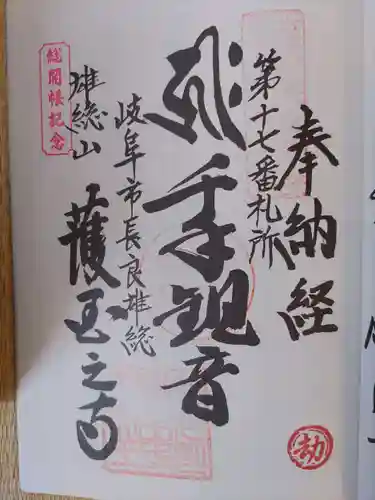 奉納経
第十七番札所
千手観音
岐阜市長良雄総
雄総山
護国之寺
総開帳記念